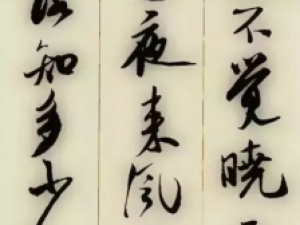 不觉晓
夜来风
知多少